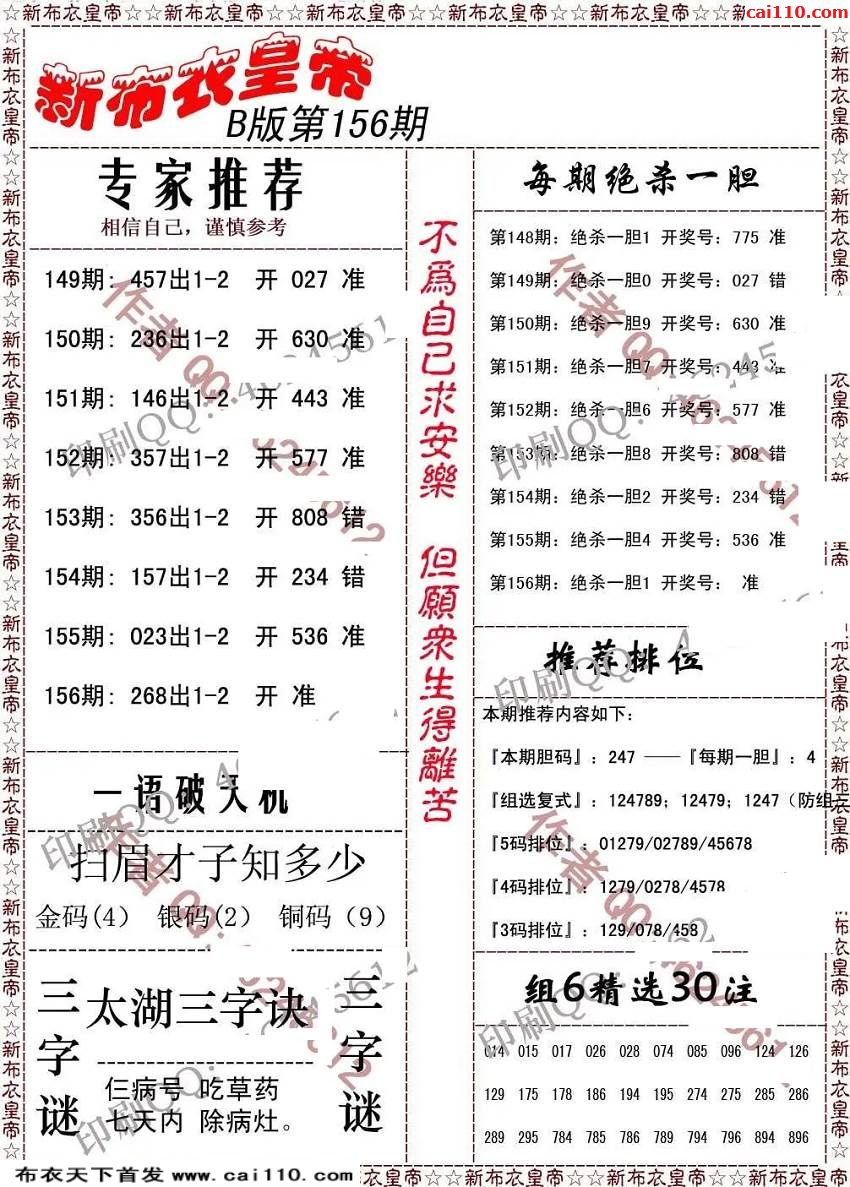 ☆☆新布衣皇帝☆☆新布衣皇帝☆☆新布衣皇帝☆☆新布衣皇帝☆☆新布衣皇帝☆☆新布衣皇帝☆☆新
cai110.com
新布衣皇帝
B版第156期
专家推荐
相信自己，谨慎参考
149期: 457出1-2 开 027 准
150期: 236出1-2 开 630 准
151期: 146出1-2 开 443 准
152期: 357出1-2 开 577 准
153期: 356出1-2 开 808 错
154期: 157出1-2 开 234 错
155期: 023出1-2 开 536 准
156期: 268出1-2 开 准
一语破天机
扫眉才子知多少
金码(4) 银码(2) 铜码（9）
三字谜
太湖三字诀
仨病号 吃草药
七天内 除病灶。
三字谜
不爲自己求安樂 但願衆生得離苦
每期绝杀一胆
第148期: 绝杀一胆1 开奖号: 775 准
第149期: 绝杀一胆0 开奖号: 027 错
第150期: 绝杀一胆9 开奖号: 630 准
第151期: 绝杀一胆7 开奖号: 443 准
第152期: 绝杀一胆6 开奖号: 577 准
第153期: 绝杀一胆8 开奖号: 808 错
第154期: 绝杀一胆2 开奖号: 234 错
第155期: 绝杀一胆4 开奖号: 536 准
第156期: 绝杀一胆1 开奖号: 准
推荐排位
本期推荐内容如下:
『本期胆码』: 247 ——『每期一胆』: 4
『组选复式』: 124789; 12479; 1247（防组三
『5码排位』: 01279/02789/45678
『4码排位』: 1279/0278/4578
『3码排位』: 129/078/458
组6精选30注
014 015 017 026 028 074 085 096 124 126
129 175 178 186 194 195 274 275 285 286
289 295 784 785 786 79 794 796 894 896
作者QQ
印刷QQ:
布衣天下首发 www.cai110.com
衣皇帝☆☆新布衣皇帝☆☆新布衣皇帝☆☆新布衣皇帝☆☆